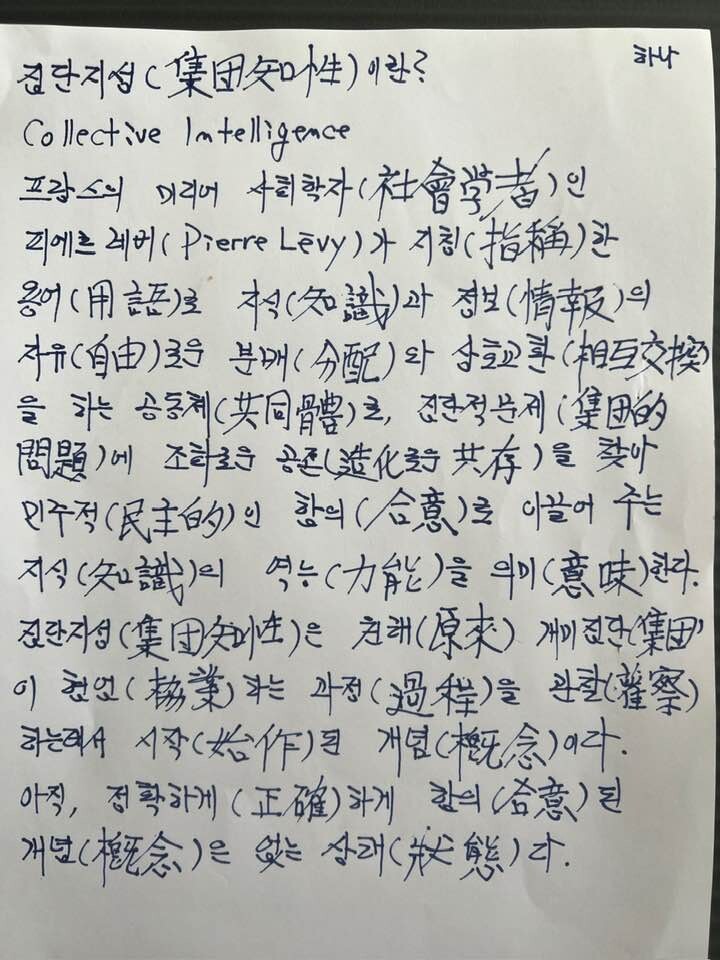 하나
집단지성(集団知性)이란?
Collective Intelligence
프랑스의 미디어 사회학자(社會学者)인
피에르 레비(Pierre Lévy)가 지칭(指稱)한
용어(用語)로 지식(知識)과 정보(情報)의
자유(自由)로운 분배(分配)와 상호교환(相互交換)
을 하는 공동체(共同體)로, 집단적문제(集団的
問題)에 조화로운 공존(造化로운 共存)을 찾아
민주적(民主的)인 합의(合意)로 이끌어 주는
지식(知識)의 역능(力能)을 의미(意味)한다.
집단지성(集団知性)은 원래(原來) 개미집단(集団)
이 협업(協業)하는 과정(過程)을 관찰(觀察)
하는데서 시작(始作)된 개념(槪念)이다.
아직, 정확하게(正確)하게 합의(合意)된
개념(槪念)은 없는 상태(狀態)다.